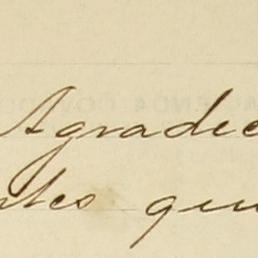 Agradec
ntes que